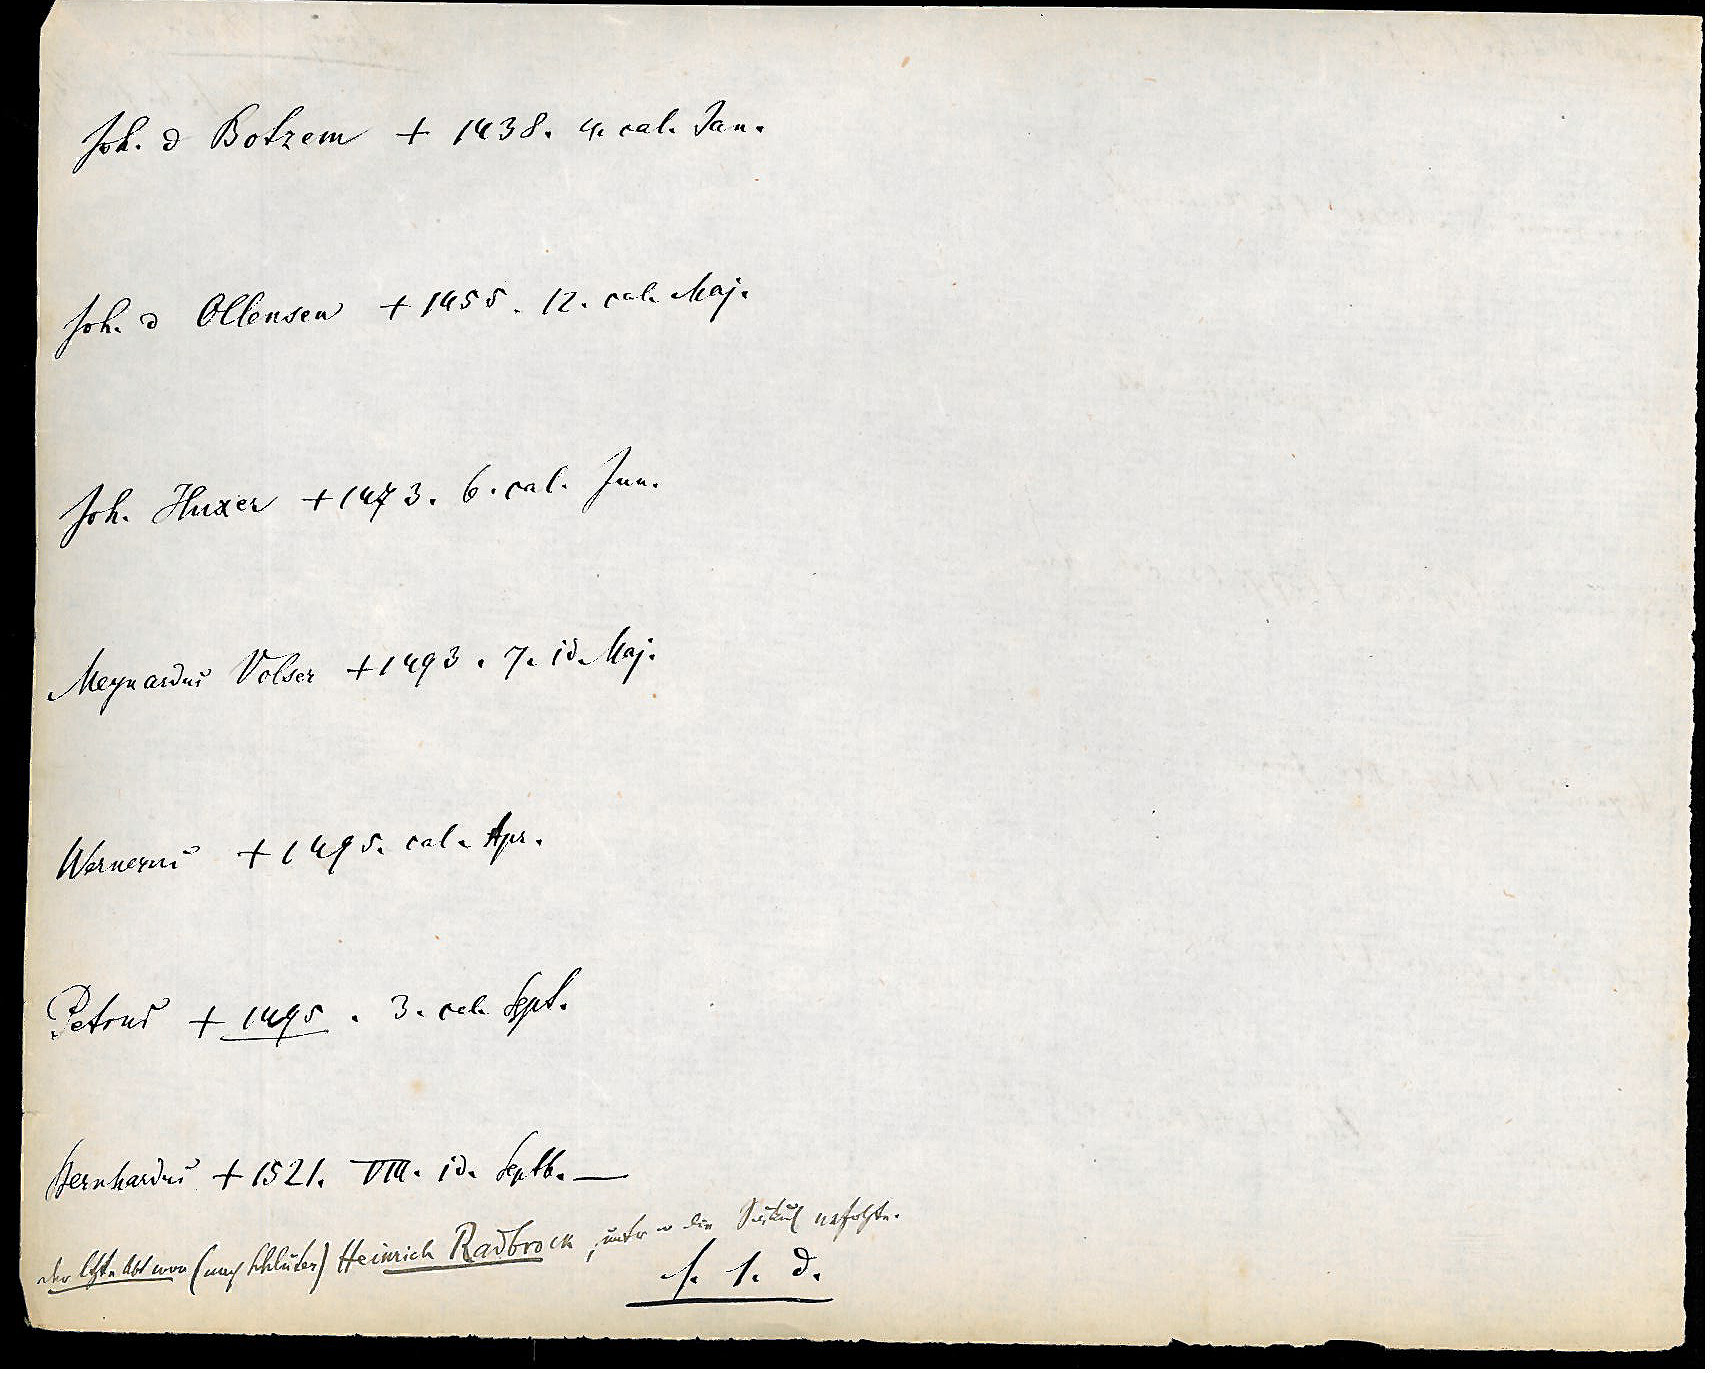 Joh. d Botzem + 1438. 4. cal. Jan.
Joh. d Ollensen + 1455. 12. cal. Maj.
Joh. Huxer + 1473. 6. cal. Jun.
Meynardus Volser + 1493. 7. id. Maj.
Wernerus + 1495. cal. Apr.
Petrus + 1495. 3. cal. Sept.
Bernhardus + 1521. VIII. id. Septb. —
der letzte Abt war (nach Schlüter) Heinrich Radbrock, unter die erfolgte.
s. s. d.